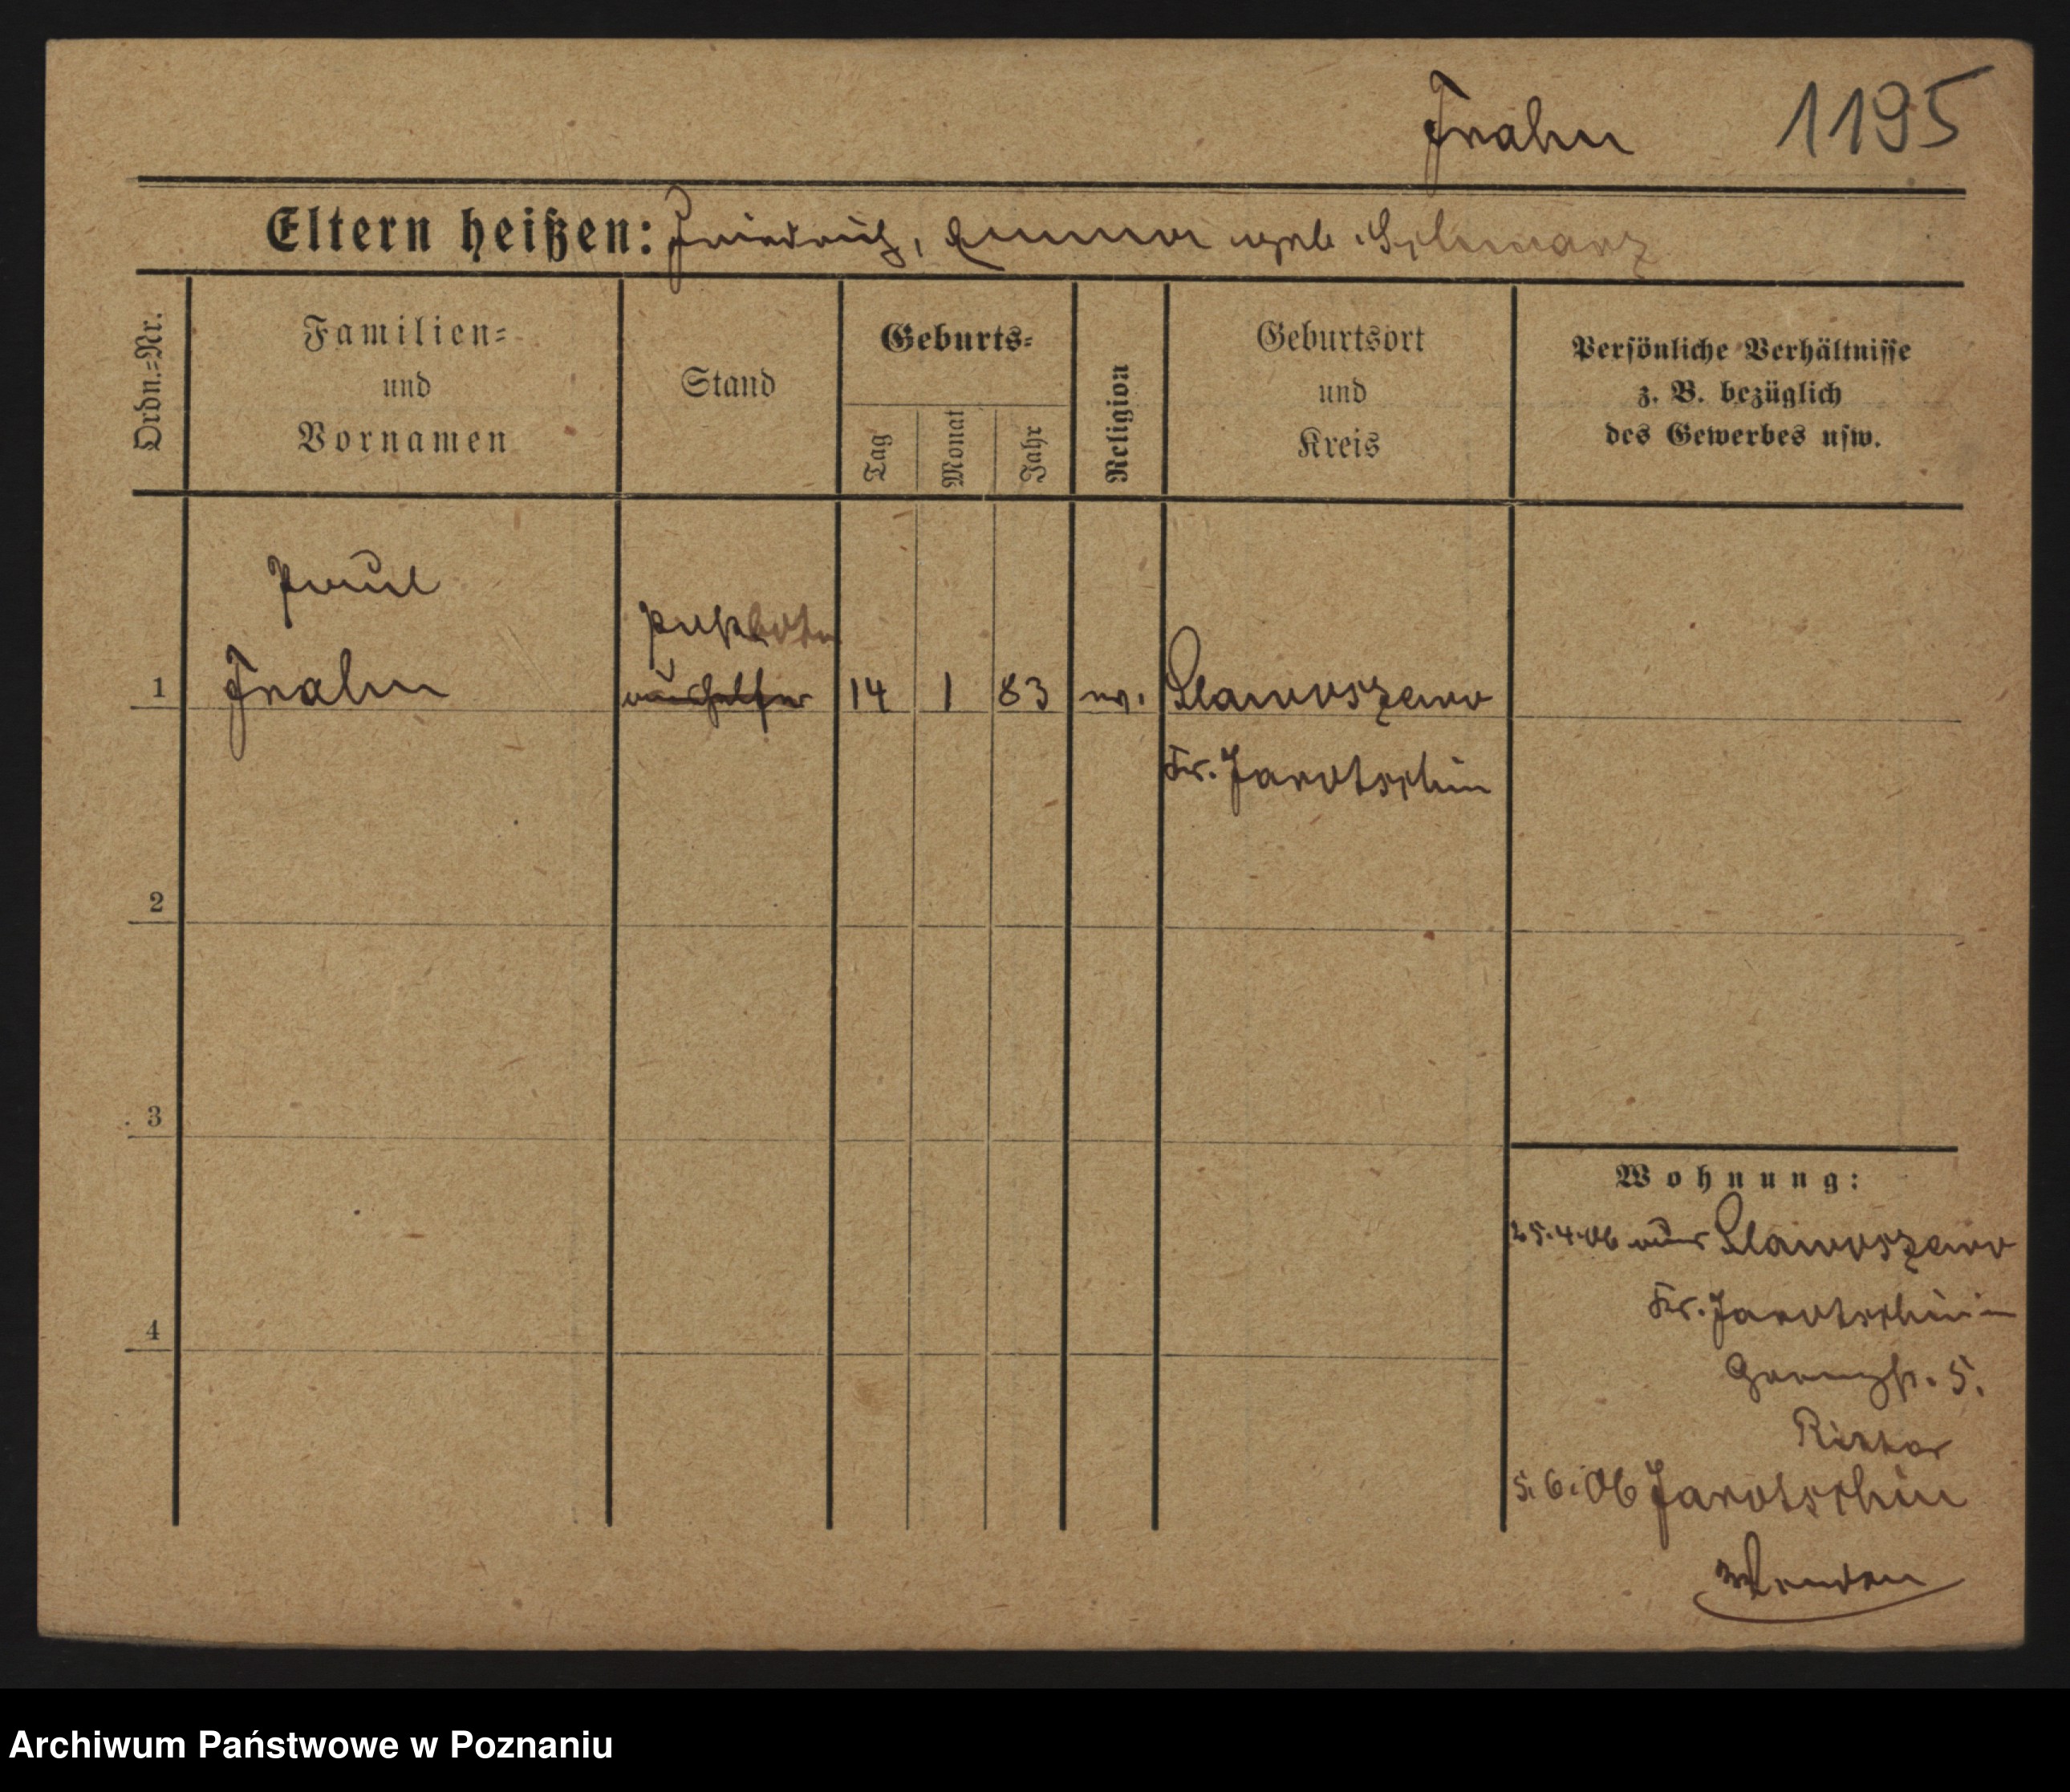 Frahm 1195
Eltern heißen: Friedrich, Emma geb. Schwarz
Ordn.=Nr.
Familien=
und
Vornamen
Stand
Geburts=
Tag
Monat
Jahr
Religion
Geburtsort
und
Kreis
Persönliche Verhältnisse
z. B. bezüglich
des Gewerbes usw.
Paul
Postbote
1 Frahm aushelfer 14 1 83 ev. Slawoszewo
Kr. Jarotschin
2
3
4
Wohnung:
25.4.06 aus Slawoszewo
Kr. Jarotschin in
5.
Ritter
5.6.06 Jarotschin
Wenden
Archiwum Państwowe w Poznaniu